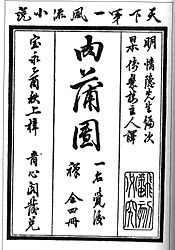 天下第一風流小說
明 情隱先生編次
日本 倚翠樓主人譯
肉蒲團
一名覺後禪 全四冊
宝永乙酉秋上梓 青心閣發兌